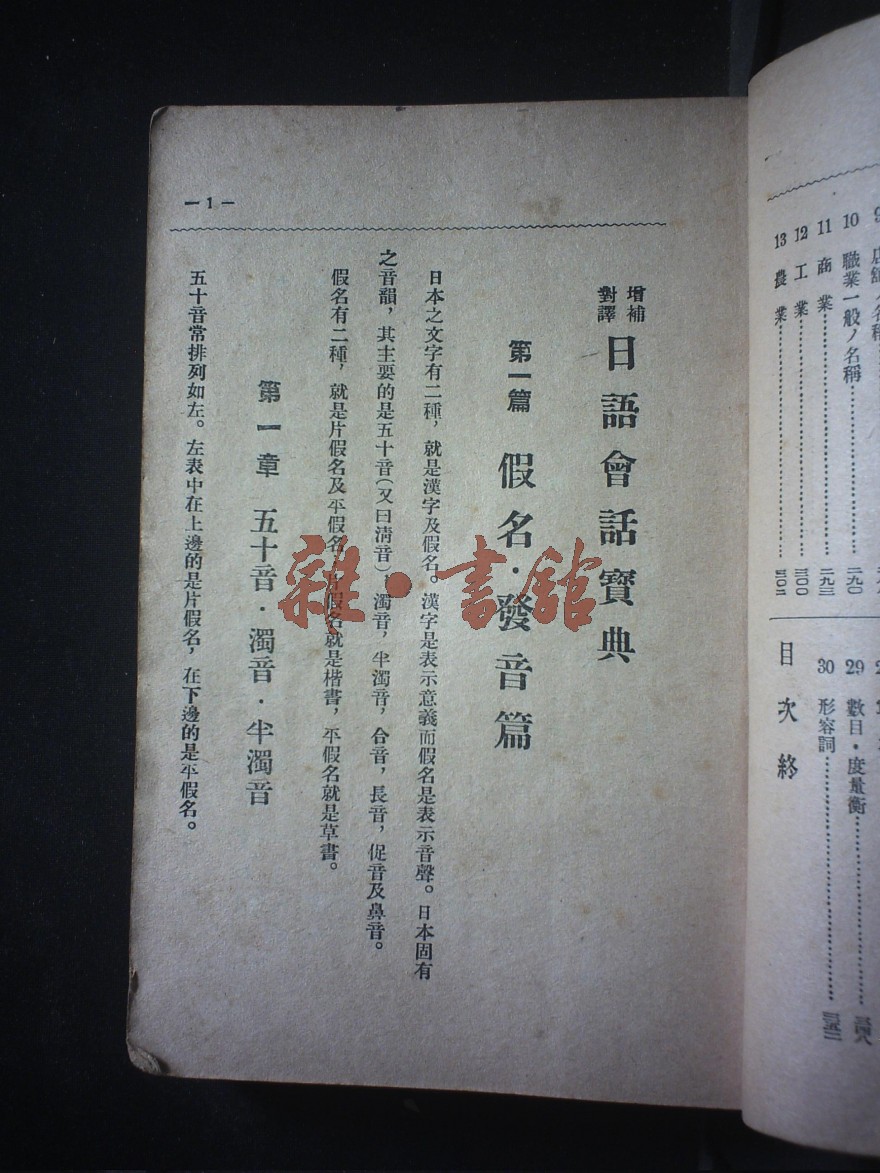 10 職業一般ノ名稱……二九〇
11 商業……二九三
12 工業……三〇〇
13 農業……三〇二
29 數目・度量衡……三四八
30 形容詞……三五二
目次終
— 1 —
增補
對譯
日語會話寶典
第一篇 假名・發音篇
日本之文字有二種，就是漢字及假名。漢字是表示意義而假名是表示音聲。日本固有
之音韻，其主要的是五十音(又曰淸音)，濁音，半濁音，合音，長音，促音及鼻音。
假名有二種，就是片假名及平假名，片假名就是楷書，平假名就是草書。
第一章 五十音・濁音・半濁音
五十音常排列如左。左表中在上邊的是片假名，在下邊的是平假名。
雜・書館